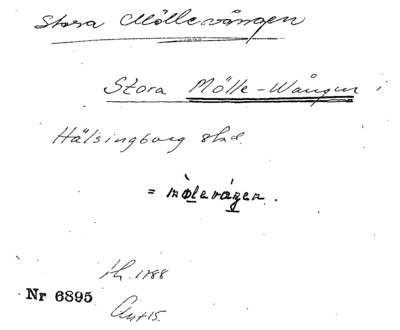 Stora Möllevången
Stora Mölle-Wången i
Hälsingborg stad.
= mølevåŋen.
1788
Nr 6895